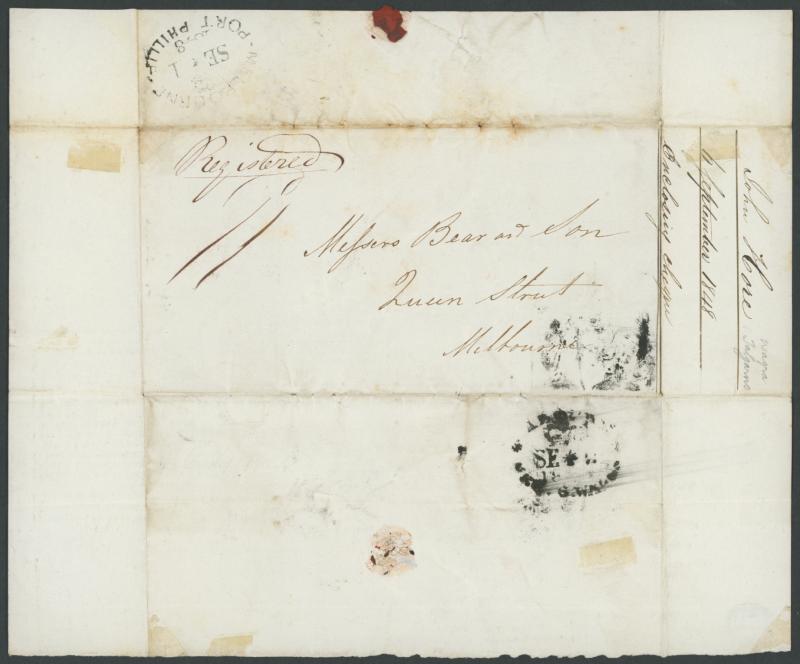 MELBOURNE PORT PHILLIP
SE
1
Registered
Messers Bear and Son
Queen Street
Melbourne
SE
John Hore
September 1848
Enclosing cheque